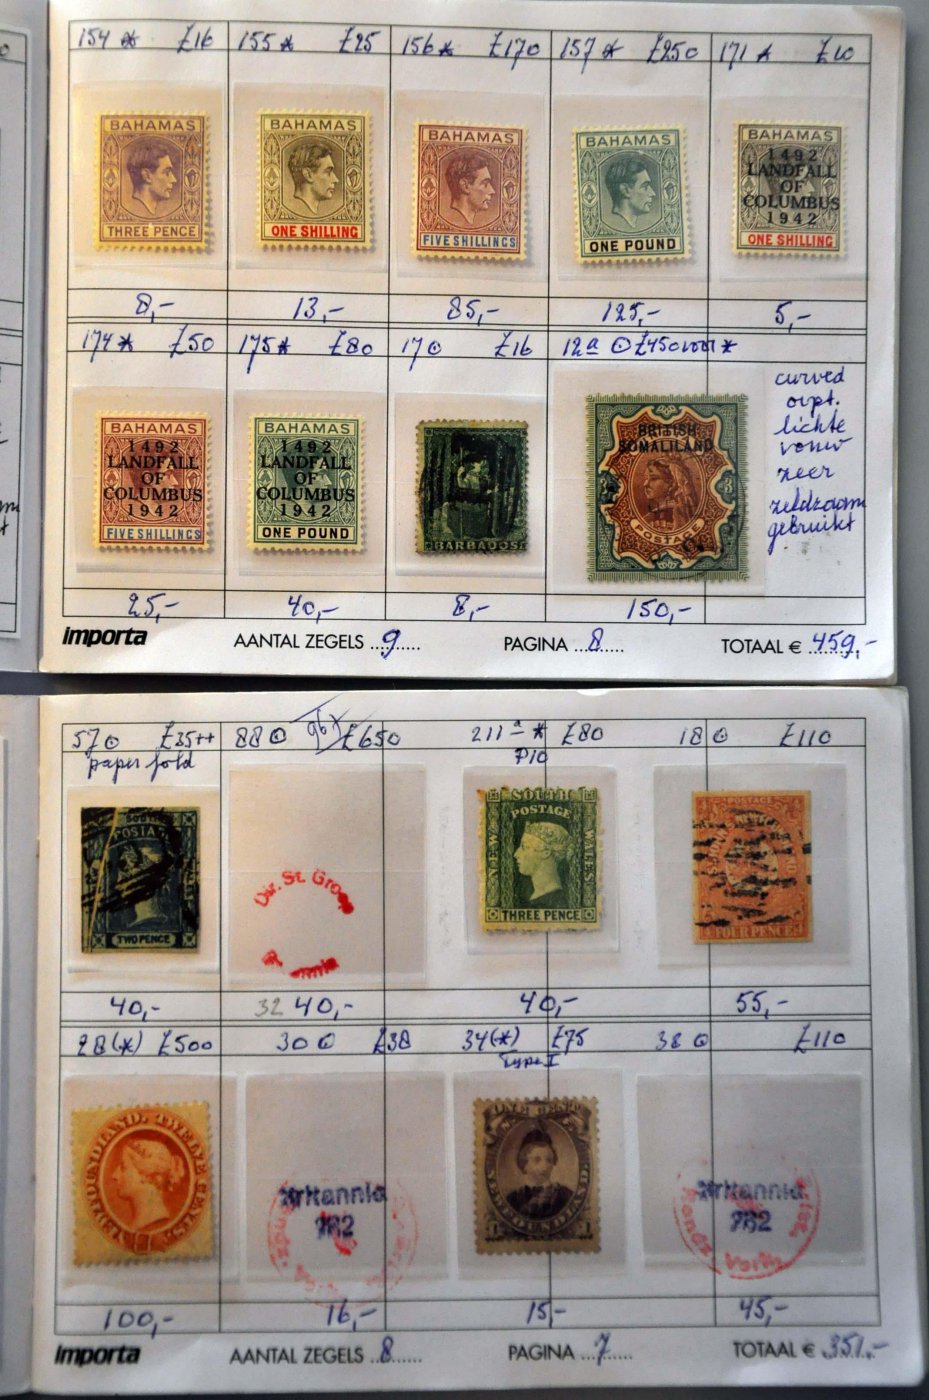 154 * £16 155 * £25 156 * £170 157 * £250 171 * £10
BAHAMAS
THREE PENCE
BAHAMAS
ONE SHILLING
BAHAMAS
FIVE SHILLINGS
BAHAMAS
ONE POUND
1492
LANDFALL
OF
COLUMBUS
1942
ONE SHILLING
8,- 13,- 85,- 125,- 5,-
174 * £50 175 * £80 17 ⊙ £16 12a ⊙ £450 voor *
BAHAMAS
1492
LANDFALL
OF
COLUMBUS
1942
FIVE SHILLINGS
BAHAMAS
1492
LANDFALL
OF
COLUMBUS
1942
ONE POUND
BARBADOS
BRITISH
SOMALILAND
POSTAGE
curved
ovpt.
lichte
vouw
zeer
zeldzaam
gebruikt
25,- 40,- 8,- 150,-
importa AANTAL ZEGELS 9 PAGINA 8 TOTAAL € 459,-
57 ⊙ £35++ 88 ⊙ £650 211a * £80 18 ⊙ £110
paper fold P10
TWO PENCE
SOUTH
POSTAGE
WALES
THREE PENCE
POSTAGE
FOUR PENCE
40,- 32 40,- 40,- 55,-
28(*) £500 30 ⊙ £38 34(*) £75 38 ⊙ £110
Type I
TWELVE CENTS
ONE CENT
Britannia
782
Britannia
782
100,- 16,- 15,- 45,-
importa AANTAL ZEGELS 8 PAGINA 7 TOTAAL € 351,-